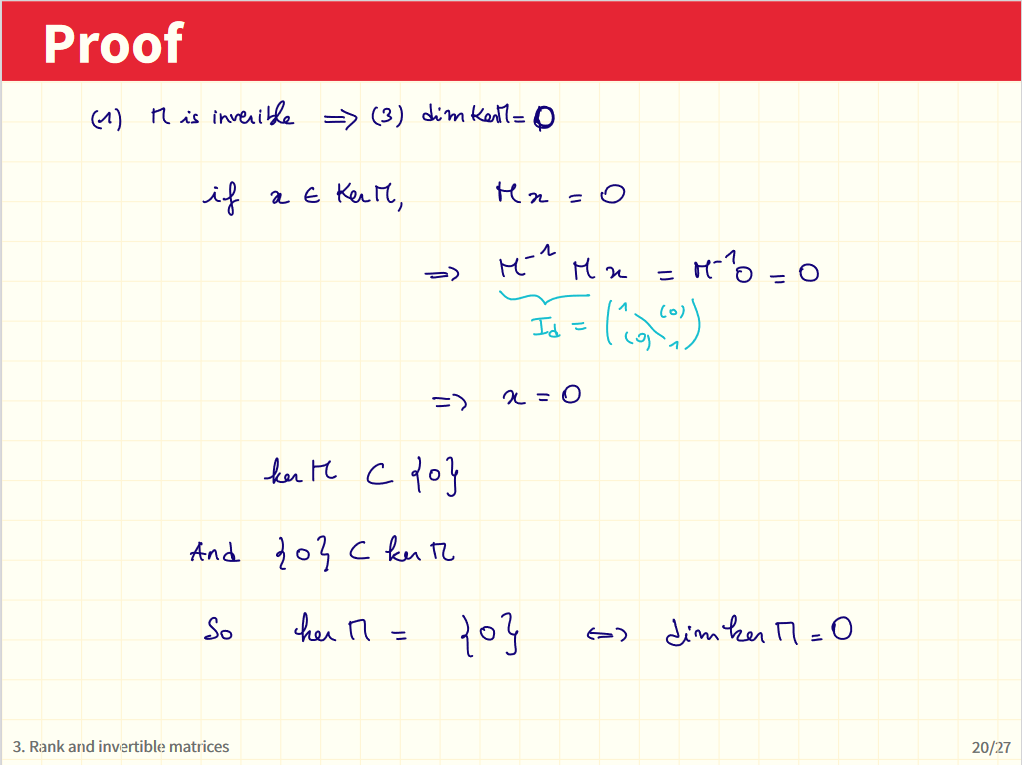 Proof
(1) M is inverible ⟹ (3) dim Ker M = 0
if x ∈ Ker M, Mx = 0
⟹ M⁻¹ M x = M⁻¹0 = 0
Id = (1 (0) (0) 1)
⟹ x = 0
ker M ⊂ {0}
And {0} ⊂ ker M
So ker M = {0} ⟺ dim ker M = 0
3. Rank and invertible matrices 20/27